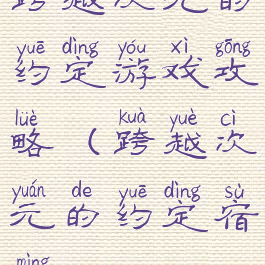 跨越次元的
yuē dìng yóu xì gōng
约定游戏攻
lüè kuà yuè cì
略（跨越次
yuán de yuē dìng sù
元的约定宿
mìng